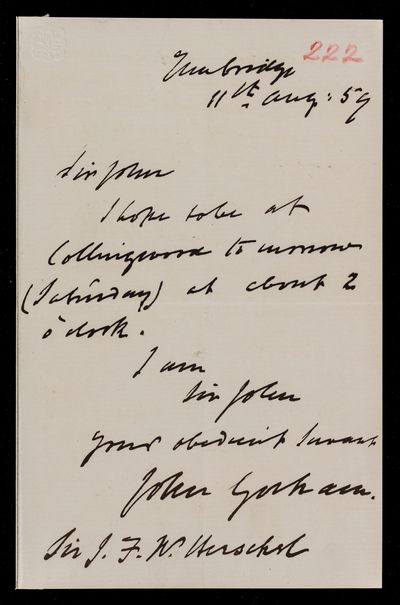 222
Tunbridge
11th Aug: 59
Sir John
I hope to be at
Collingwood tomorrow
(Saturday) at about 2
o'clock.
I am
Sir John
your obedient Servant
John Gorham.
Sir J. F. W. Herschel